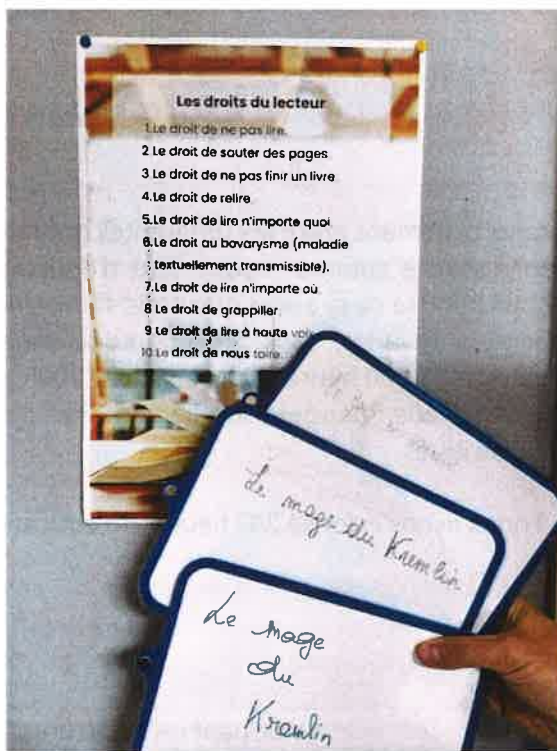 Les droits du lecteur
1.Le droit de ne pas lire.
2 Le droit de sauter des pages
3 Le droit de ne pas finir un livre
4.Le droit de relire
5.Le droit de lire n'importe quoi
6.Le droit au bovarysme (maladie
textuellement transmissible).
7.Le droit de lire n'importe où
8 Le droit de grappiller
9 Le droit de lire à haute voix
10.Le droit de nous taire.
Le mage du Kremlin
Le mage
du
Kremlin